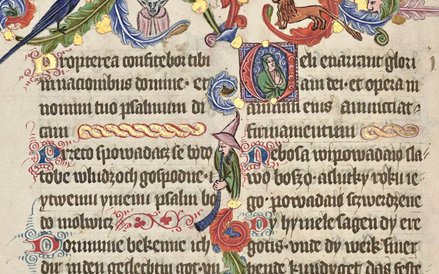 Propterea confitebor tibi
in nacionibus domine · et
nomini tuo psalmum di
cam
Preto spowadacz se bødø
tobe wludzoch gospodne · i
ytwemu ymenu psalm bø
dø molwicz
Dorumme bekenne ich
dir in den geslechtin got · vn
Celi enarrant glori
am dei · et opera m
num eius annunciat
firmamentum
Nebosa wipowadaiø sla
wø boszø · a skutky røku ie
go · powadaiø szwerdzene
Dy hymele sagen dy ere
gotis · vnde dy werk siner
hende kundyget das fest